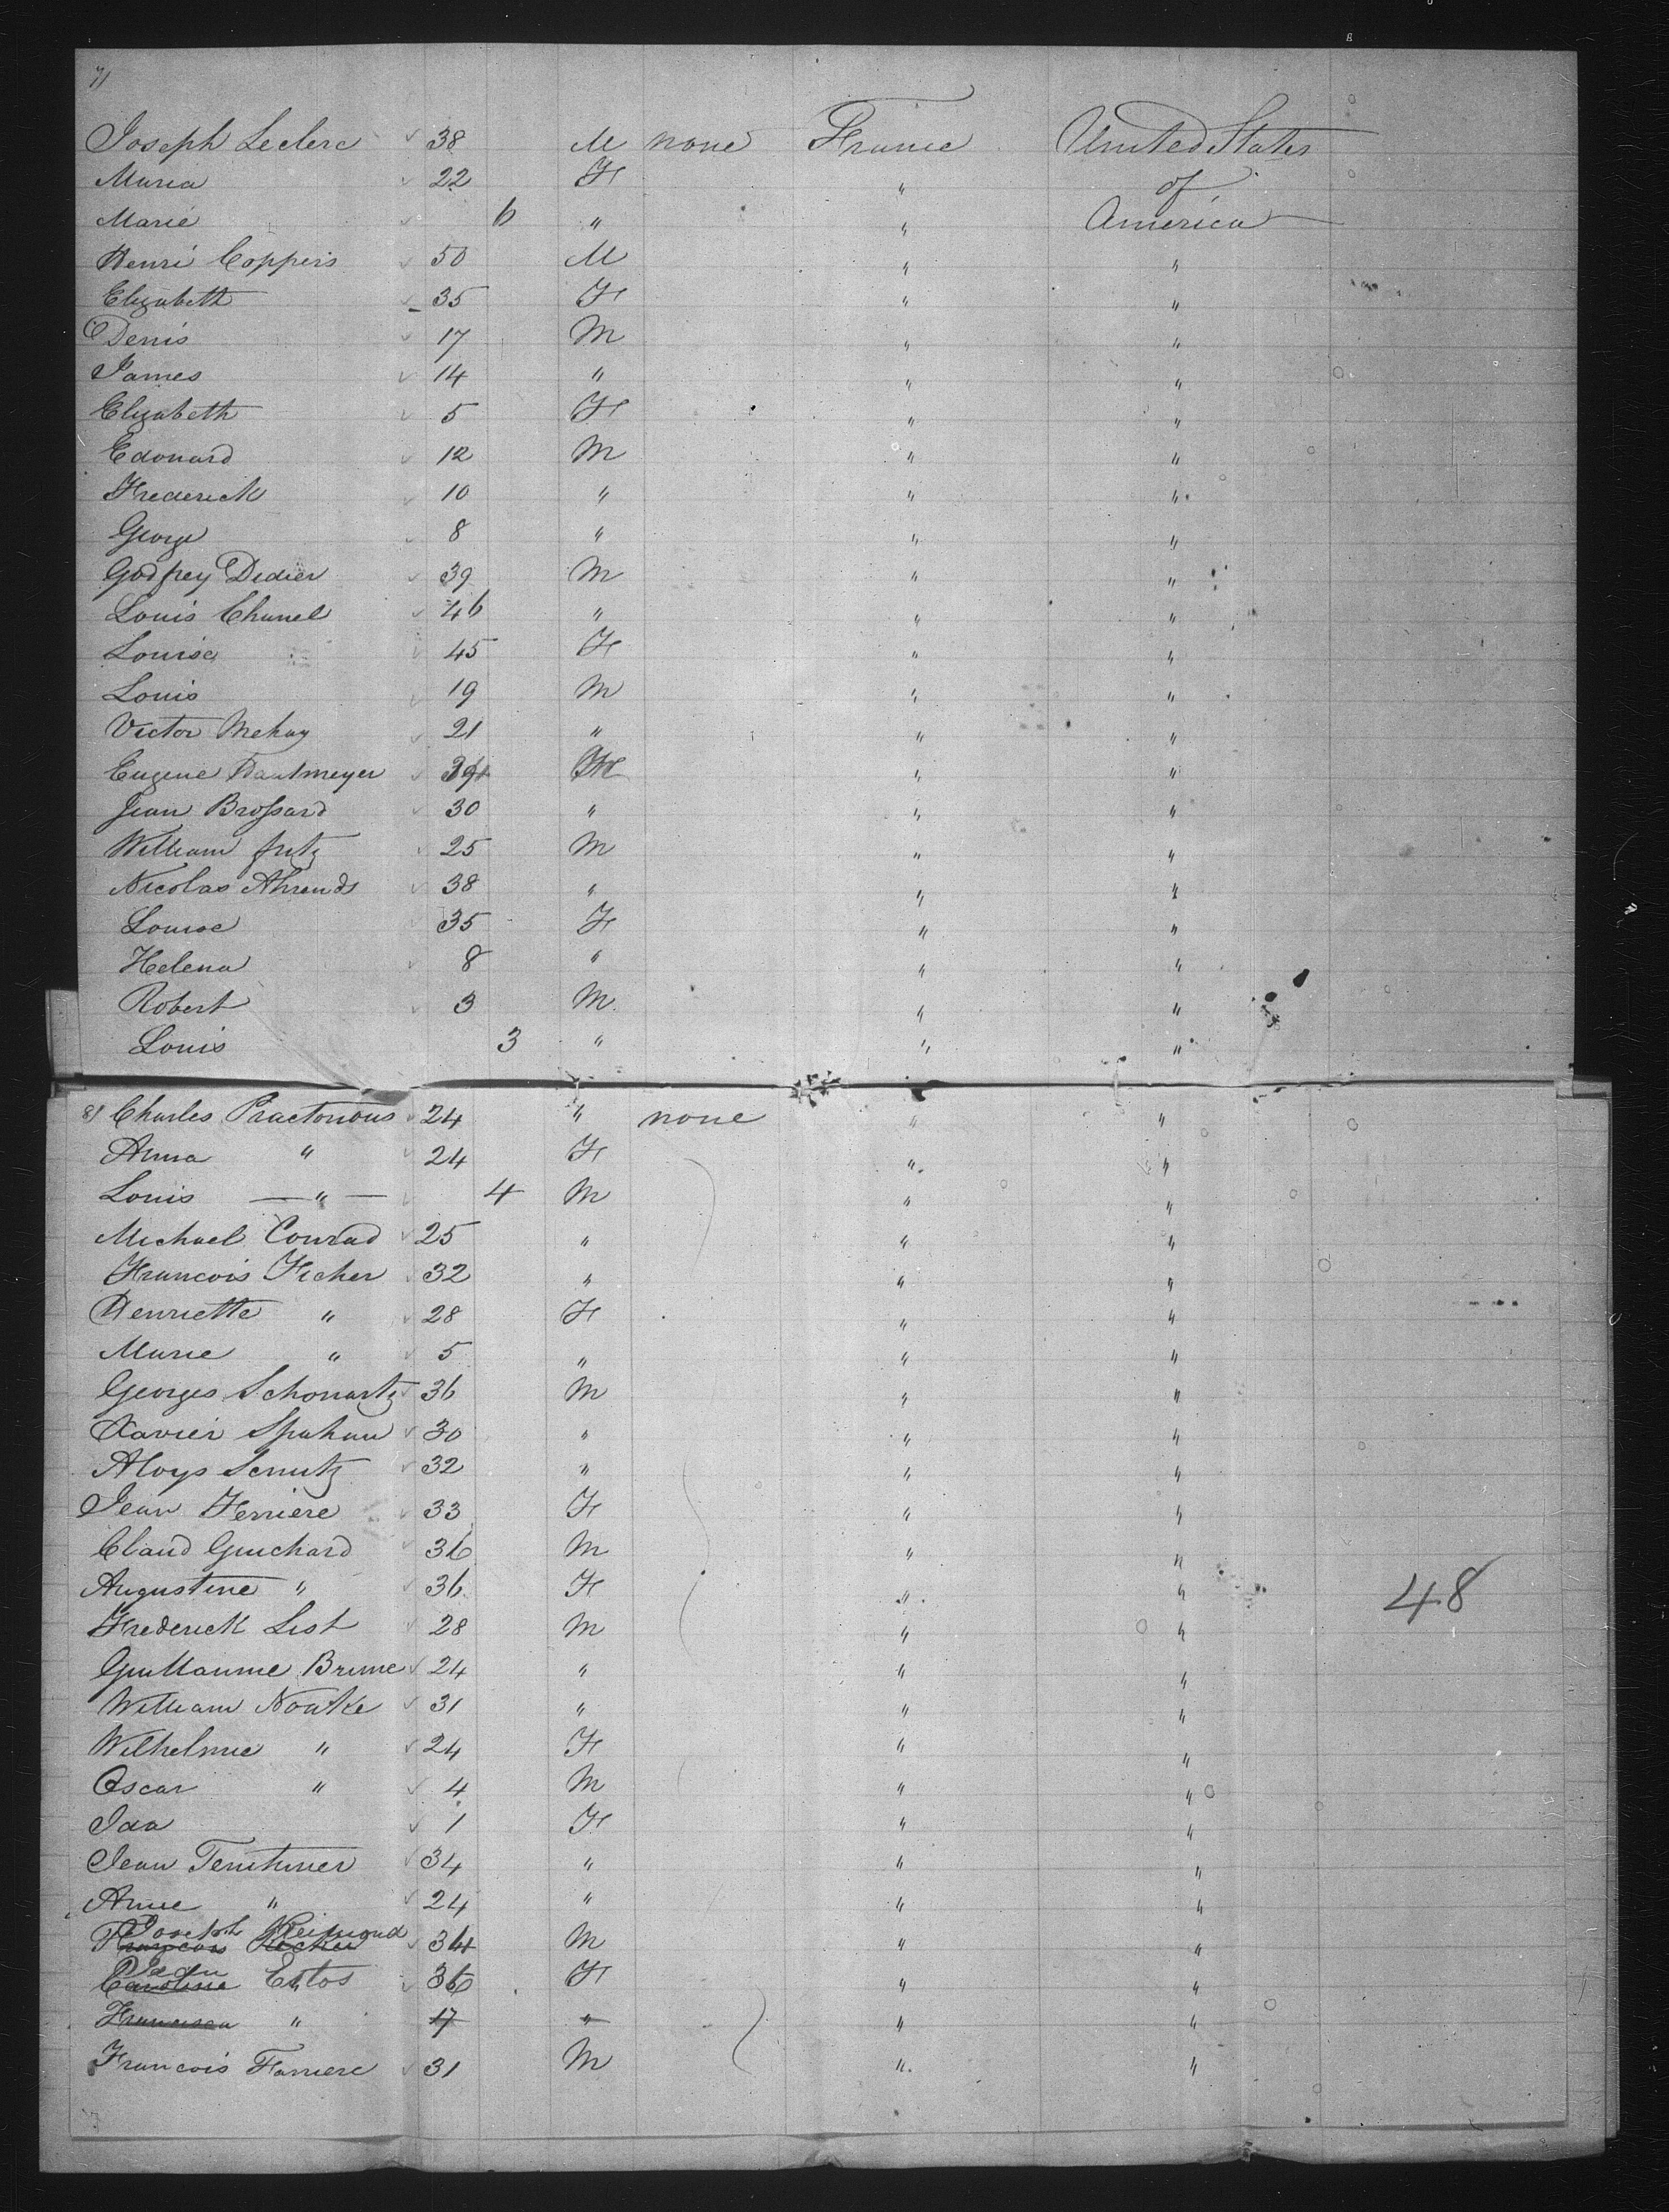 7)
Joseph Leclerc 38 M none France United States
Maria 22 F " of
Marie 6 " " America
Henri Coppeis 50 M " "
Elizabeth 35 F " "
Denis 17 M " "
James 14 " " "
Elizabeth 5 F " "
Edouard 12 M " "
Frederick 10 " " "
George 8 " " "
Godfrey Didier 39 M " "
Louis Chanel 46 " " "
Louise 45 F " "
Louis 19 M " "
Victor Mehay 21 " " "
Eugene " "
Jean Brossard 30 " " "
William fritz 25 M " "
Nicolas Ahrends 38 " " "
Louise 35 F " "
Helena 8 " " "
Robert 3 M " "
Louis 3 " " "
8) Charles Praetorious 24 " none " "
Anna " 24 F " "
Louis — " — 4 M " "
Michael Conrad 25 " " "
Francois Ficher 32 " " "
Henriette " 28 F " "
Marie " 5 " " "
Georges Schonartz 36 M " "
Xavier Spahun 30 " " "
Aloys 32 " " "
Jean Ferriere 33 F " "
Claud Guichard 36 M " "
Augustine " 36 F " " 48
Frederick List 28 M " "
Guillaume Brime 24 " " "
William Nouke 31 " " "
Wilhelmie " 24 F " "
Oscar " 4 M " "
Ida 1 F " "
Jean 34 " " "
Anne " 24 " " "
Joseph
Francois 34 M " "
Jean
Caroline Estos 36 F " "
Francisca " 17 " " "
Francois Farriere 31 M " "